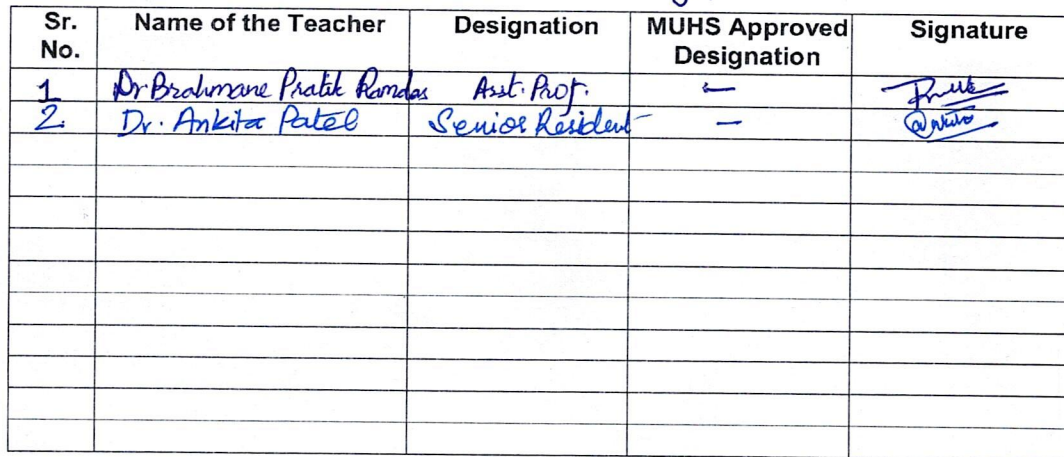 Sr. No. Name of the Teacher Designation MUHS Approved Designation Signature
1 Dr Brahmane Pratik Ramdas Asst. Prof. –
2. Dr. Ankita Patel Senior Resident –